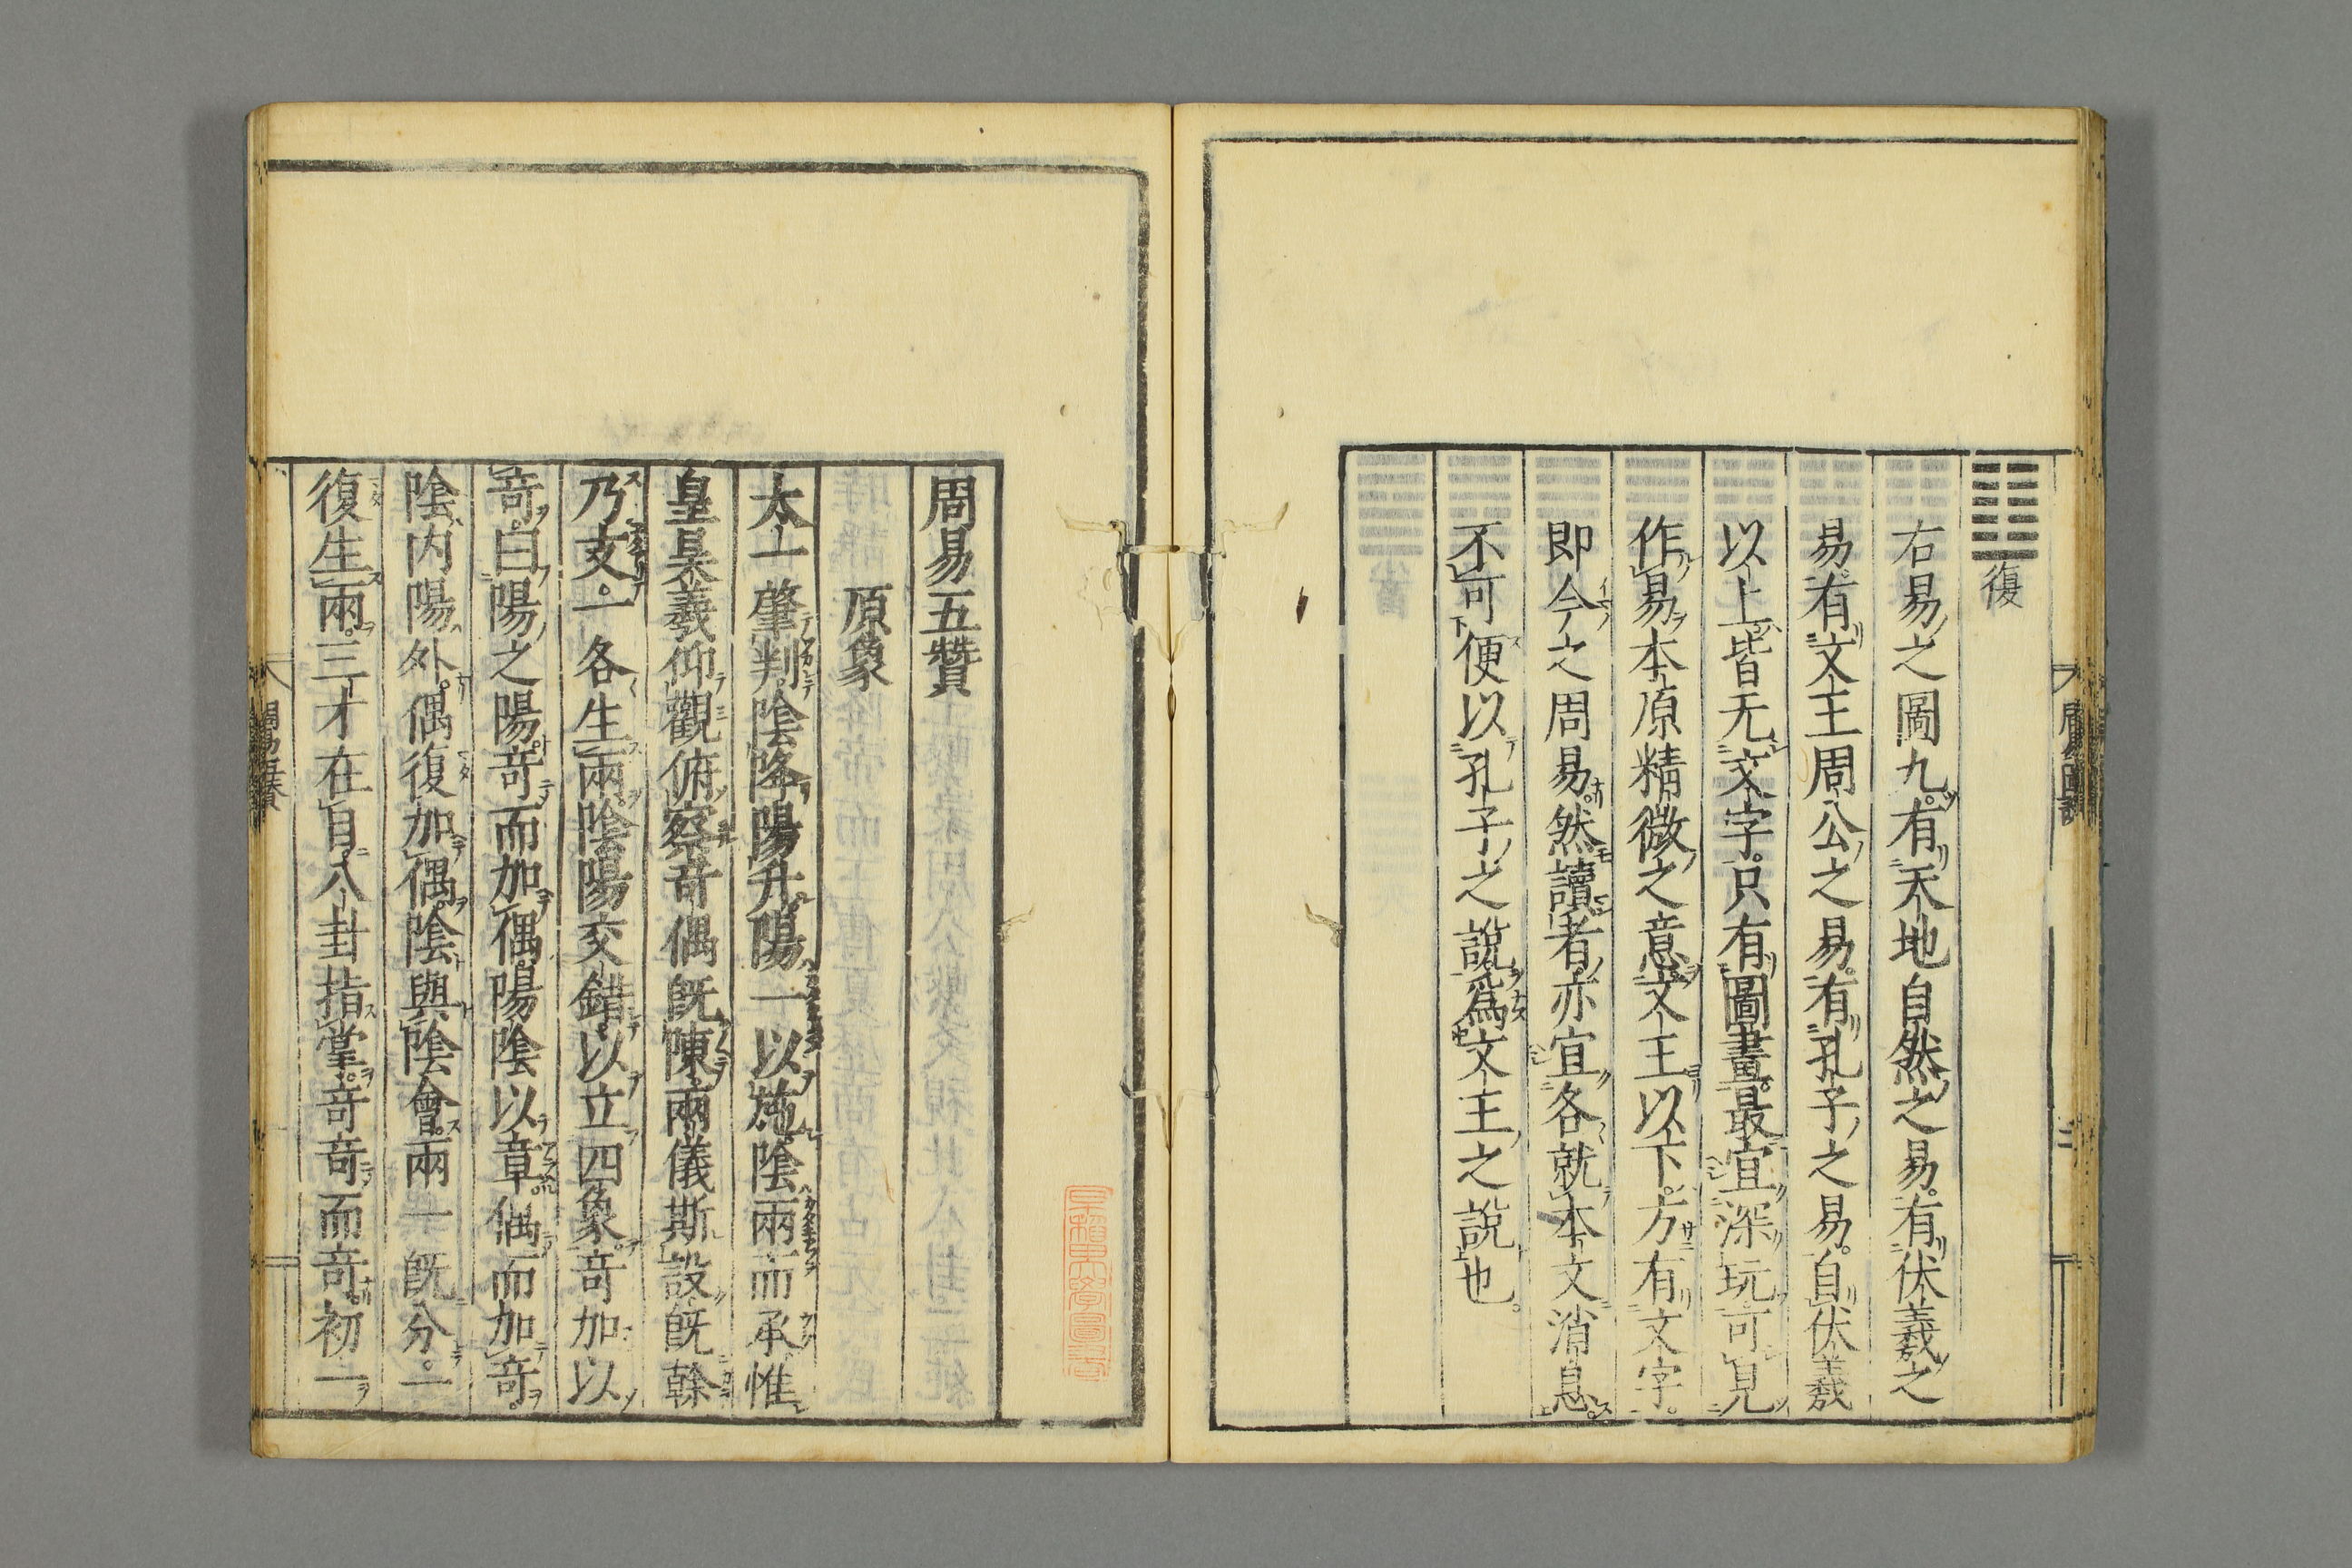 復
右易之圖九有天地自然之易有伏羲之
易有文王周公之易有孔子之易自伏羲
以上皆无文字只有圖畫最宜深玩可見
作易本原精微之意文王以下方有文字
即今之周易然讀者亦宜各就本文消息
不可便以孔子之說爲文王之說也
周易五贊
原象
太一肇判陰降陽升陽一以施陰兩而承惟
皇昊羲仰觀俯察竒偶旣陳兩儀斯設旣幹
乃支一各生兩陰陽交錯以立四象竒加以
竒曰陽之陽竒而加偶陽陰以章偶而加竒
陰内陽外偶復加偶陰與陰會兩一旣分一
復生兩三才在目八卦指掌竒竒而竒初一
周易五贊